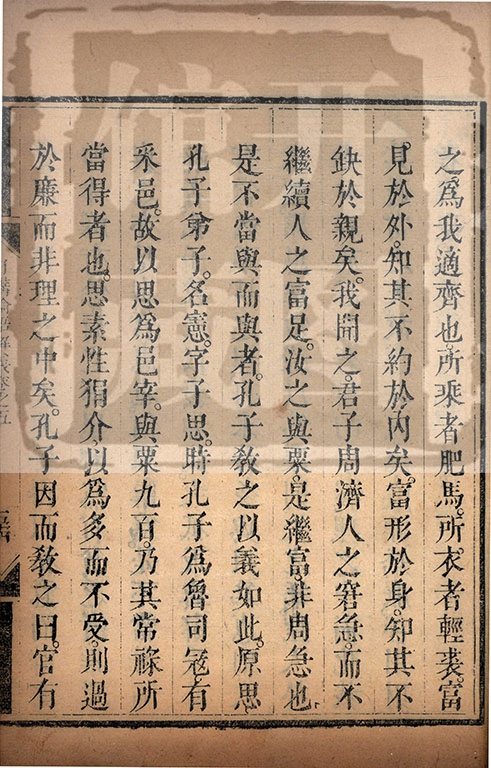 之爲我適齊也。所乘者肥馬。所衣者輕裘。富
見於外。知其不約於內矣。富形於身。知其不
缺於親矣。我聞之。君子周濟人之窘急。而不
繼續人之富足。汝之與粟。是繼富。非周急也。
是不當與而與者。孔子敎之以義如此。原思
孔子弟子。名憲。字子思。時孔子爲魯司寇。有
采邑。故以思爲邑宰。與粟九百。乃其常祿所
當得者也。思素性狷介。以爲多而不受。則過
於廉而非理之中矣。孔子因而敎之曰。官有